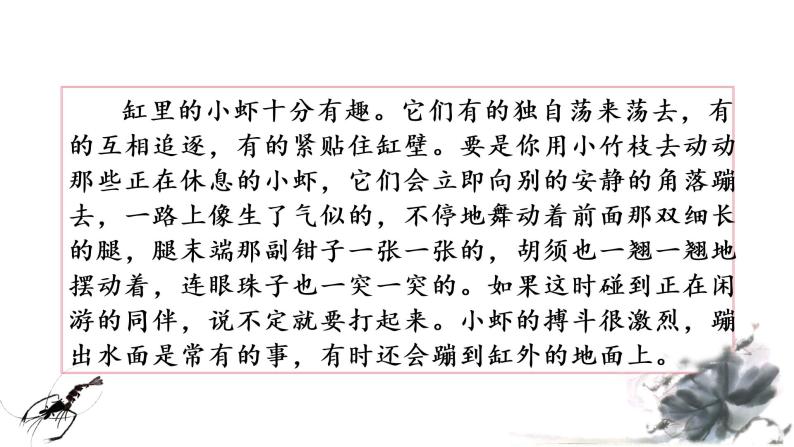 缸里的小虾十分有趣。它们有的独自荡来荡去，有
的互相追逐，有的紧贴住缸壁。要是你用小竹枝去动动
那些正在休息的小虾，它们会立即向别的安静的角落蹦
去，一路上像生了气似的，不停地舞动着前面那双细长
的腿，腿末端那副钳子一张一张的，胡须也一翘一翘地
摆动着，连眼珠子也一突一突的。如果这时碰到正在闲
游的同伴，说不定就要打起来。小虾的搏斗很激烈，蹦
出水面是常有的事，有时还会蹦到缸外的地面上。